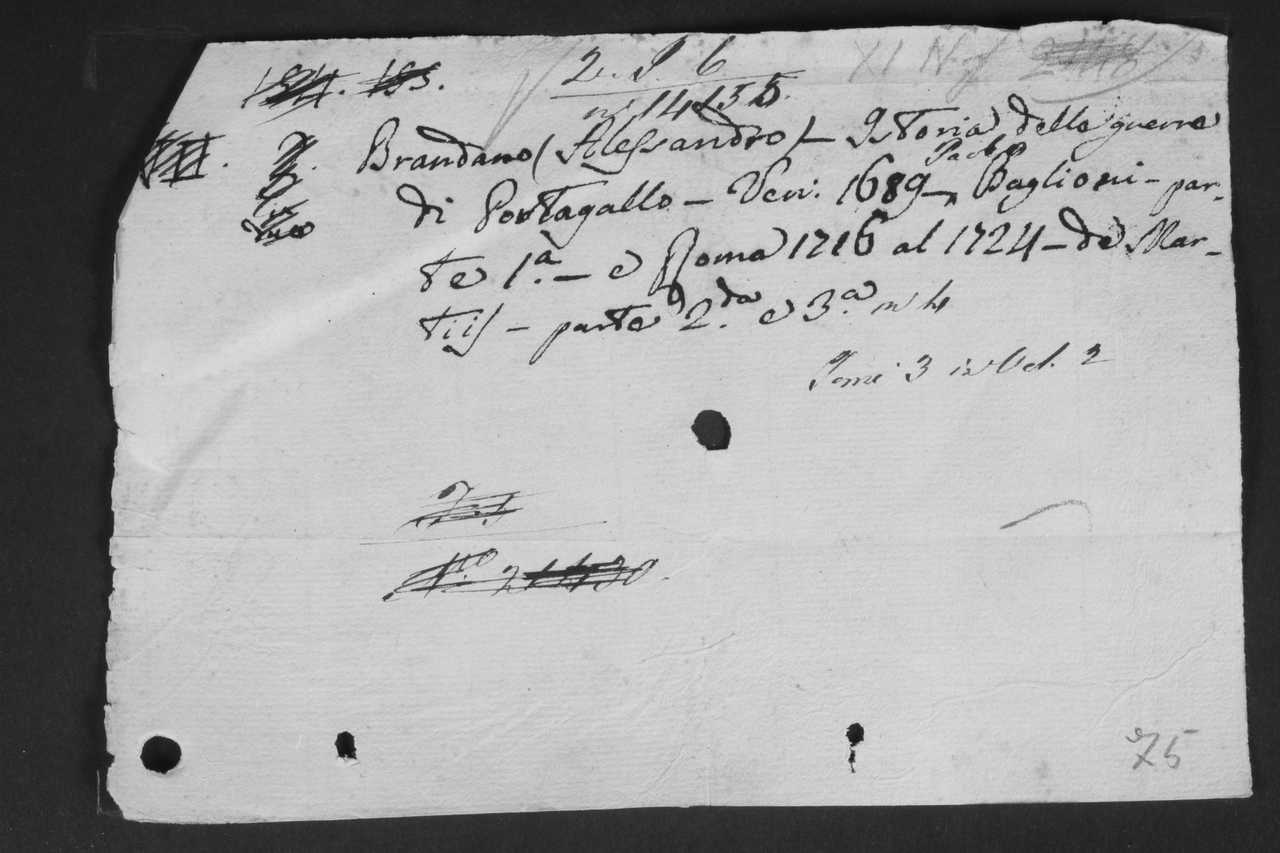 2. S. 6
n.º 14155.
Brandano (Alessandro) - Istoria delle guerre
di Portagallo - Ven: 1689 - Paolo Baglioni - par-
te 1.ª - e Roma 1716 al 1724 - de Mar-
tiis - parte 2.da e 3.ª in 4
Tomi 3 in Vol. 2
75